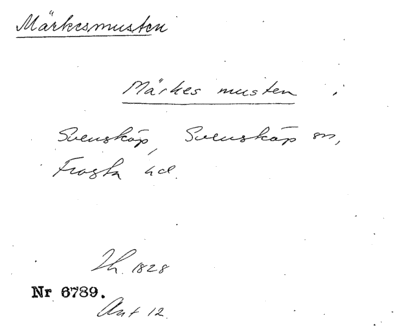 Märkesmusten
Märkes musten
Svensköp, Svensköp sn,
Frosta hd.
Th. 1828
Nr 6789.
Ant 12.